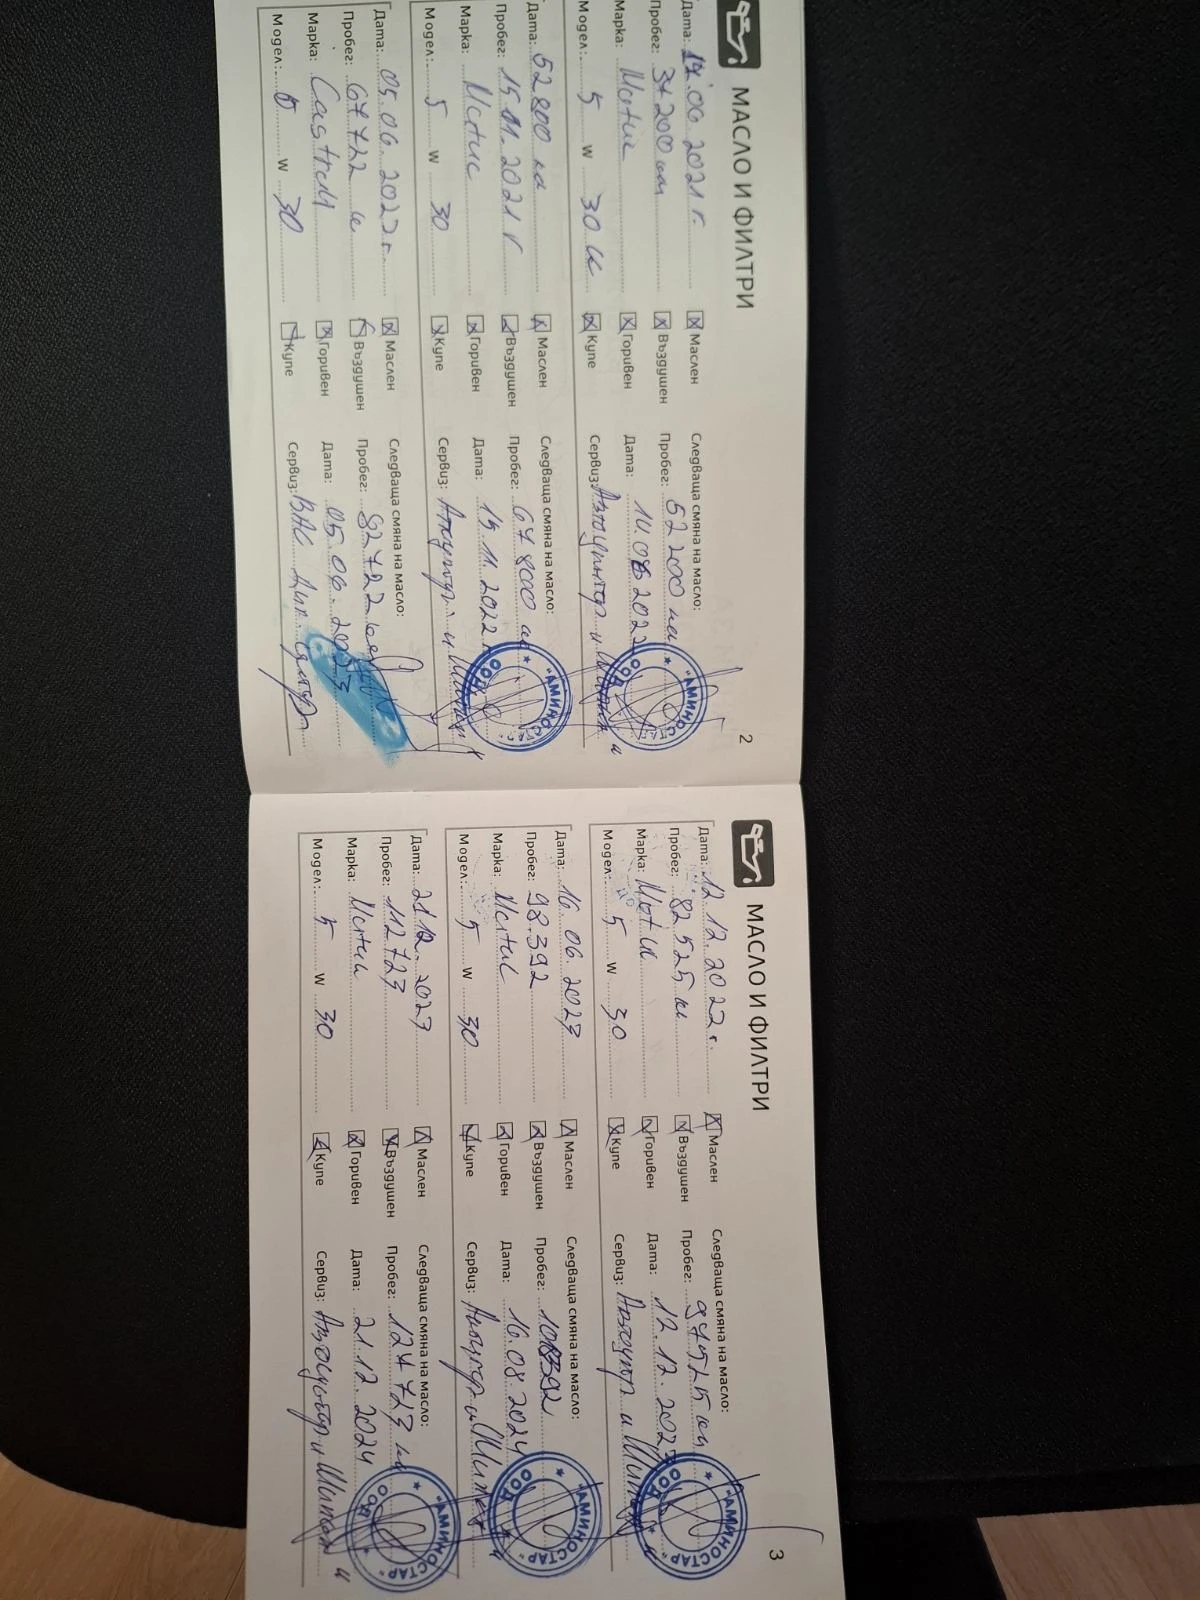 МАСЛО И ФИЛТРИ
2
Дата: 14.06 2021 г.
Пробег: 37200 км
Марка: Motul
Модел: 5 W 30
Маслен
Въздушен
Горивен
Купе
Следваща смяна на масло:
Пробег: 52200 км
Дата: 2022
Сервиз: и
"АМИНОСТАР" ООД
Дата: 52800 км
Пробег: 15.11.2021 г
Марка: Motul
Модел: 5 W 30
Маслен
Въздушен
Горивен
Купе
Следваща смяна на масло:
Пробег: 67800 км
Дата: 15.11.2022 г.
Сервиз: и
"АМИНОСТАР" ООД
Дата: 05.06.2022 г.
Пробег: 67722
Марка: Castrol
Модел: W 30
Маслен
Въздушен
Горивен
Купе
Следваща смяна на масло:
Пробег: 82722
Дата: 05.06.2023
Сервиз:
МАСЛО И ФИЛТРИ
3
Дата: 12.12.2022 г.
Пробег: 82525 км
Марка: Motul
Модел: 5 W 30
Маслен
Въздушен
Горивен
Купе
Следваща смяна на масло:
Пробег: 97525 км
Дата: 12.12.2023
Сервиз: и
"АМИНОСТАР" ООД
Дата: 16.06.2023
Пробег: 98.392
Марка: Motul
Модел: 5 W 30
Маслен
Въздушен
Горивен
Купе
Следваща смяна на масло:
Пробег:
Дата: 16.08.2024
Сервиз: и
"АМИНОСТАР" ООД
Дата: 21.12.2023
Пробег: 112723
Марка: Motul
Модел: 5 W 30
Маслен
Въздушен
Горивен
Купе
Следваща смяна на масло:
Пробег: 127723 км
Дата: 21.12.2024
Сервиз: и
"АМИНОСТАР" ООД